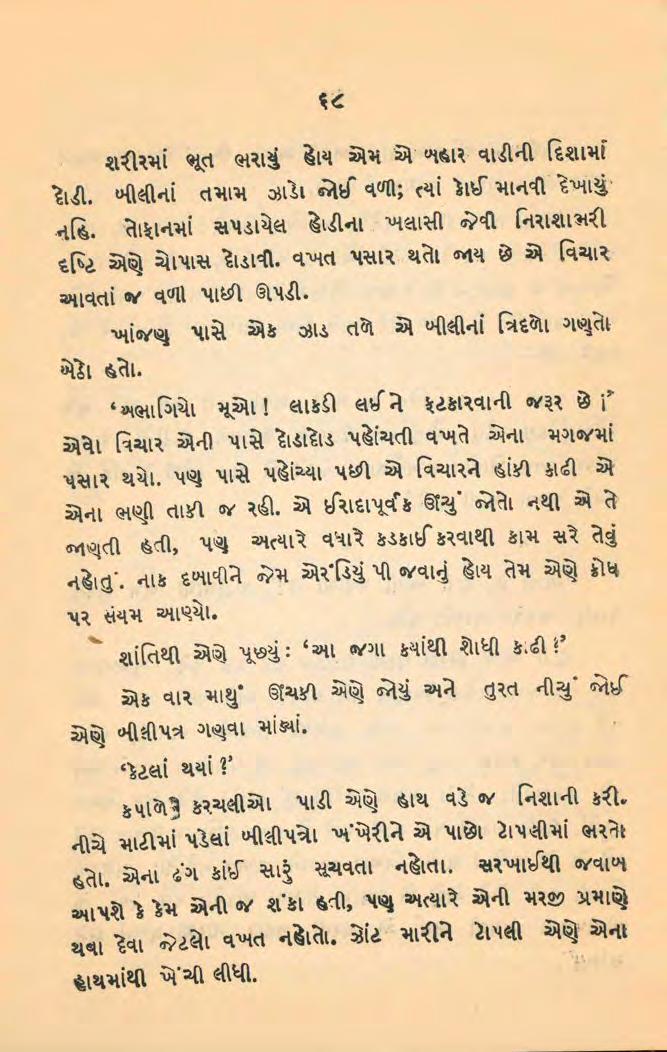 ૬૮
શરીરમાં ભૂત ભરાયું હોય એમ એ બહાર વાડીની દિશામાં
દોડી. બીલીનાં તમામ ઝાડો જોઈ વળી; ત્યાં કોઈ માનવી દેખાયું
નહિ. તોફાનમાં સપડાયેલ હોડીના ખલાસી જેવી નિરાશાભરી
દૃષ્ટિ એણે ચોપાસ દોડાવી. વખત પસાર થતો જાય છે એ વિચાર
આવતાં જ વળી પાછી ઊપડી.
ખાંજણ પાસે એક ઝાડ તળે એ બીલીનાં ત્રિદળો ગણતો
બેઠો હતો.
‘અભાગિયો મૂઓ! લાકડી લઈને ફટકારવાની જરૂર છે !’
એવો વિચાર એની પાસે દોડાદોડ પહોંચતી વખતે એના મગજમાં
પસાર થયો. પણ પાસે પહોંચ્યા પછી એ વિચારને હાંકી કાઢી એ
એના ભણી તાકી જ રહી. એ ઈરાદાપૂર્વક ઊંચું જોતો નથી એ તે
જાણતી હતી, પણ અત્યારે વધારે કડકાઈ કરવાથી કામ સરે તેવું
નહોતું. નાક દબાવીને જેમ એરંડિયું પી જવાનું હોય તેમ એણે ક્રોધ
પર સંયમ આણ્યો.
શાંતિથી એણે પૂછ્યું : ‘આ જગા ક્યાંથી શોધી કાઢી ?’
એક વાર માથું ઊંચકી એણે જોયું અને તુરત નીચું જોઈ
એણે બીલીપત્ર ગણવા માંડ્યાં.
‘કેટલાં થયાં ?’
કપાળે કરચલીઓ પાડી એણે હાથ વડે જ નિશાની કરી.
નીચે માટીમાં પડેલાં બીલીપત્રો ખંખેરીને એ પાછો ટોપલીમાં ભરતો
હતો. એના ઢંગ કાંઈ સારું સૂચવતા નહોતા. સરખાઈથી જવાબ
આપશે કે કેમ એની જ શંકા હતી, પણ અત્યારે એની મરજી પ્રમાણે
થવા દેવા જેટલો વખત નહોતો. ઝોંટ મારીને ટોપલી એણે એના
હાથમાંથી ખેંચી લીધી.